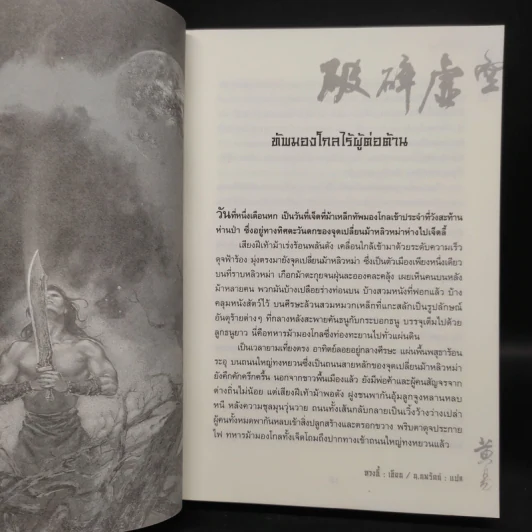 破碎虛空
ทัพมองโกลไร้ผู้ต่อต้าน
วันที่หนึ่งเดือนหก เป็นวันที่เจ็ดที่ม้าเหล็กทัพมองโกลเข้าประจำที่วังสะท้าน
ท่านป่า ซึ่งอยู่ทางทิศตะวันตกของจุดเปลี่ยนม้าหลิวหม่าห่างไปเจ็ดลี้
เสียงฝีเท้าม้าเร่งร้อนพลันดัง เคลื่อนใกล้เข้ามาด้วยระดับความเร็ว
ดุจฟ้าร้อง มุ่งตรงมายังจุดเปลี่ยนม้าหลิวหม่า ซึ่งเป็นตัวเมืองเพียงหนึ่งเดียว
บนที่ราบหลิวหม่า เกือกม้าตะกุยจนฝุ่นละอองคละคลุ้ง เผยเห็นคนบนหลัง
ม้าหลายคน พวกมันบ้างเปลือยร่างท่อนบน บ้างสวมหนังที่ฟอกแล้ว บ้าง
คลุมหนังสัตว์ไว้ บนศีรษะล้วนสวมหมวกเหล็กที่แกะสลักเป็นรูปลักษณ์
อันดุร้ายต่างๆ ที่กลางหลังสะพายคันธนูกับกระบอกธนู บรรจุเต็มไปด้วย
ลูกธนูยาว นี่คือทหารม้ามองโกลซึ่งท่องทะยานไปทั่วแผ่นดิน
เป็นเวลายามเที่ยงตรง อาทิตย์ลอยอยู่กลางศีรษะ แผ่นพื้นพสุธาร้อน
ระอุ บนถนนใหญ่ทงหยวนซึ่งเป็นถนนสายหลักของจุดเปลี่ยนม้าหลิวหม่า
ยังคึกคักครึกครื้น นอกจากชาวพื้นเมืองแล้ว ยังมีพ่อค้าและผู้คนสัญจรจาก
ต่างถิ่นไม่น้อย แต่เสียงฝีเท้าม้าพอดัง ฝูงชนพากันอุ้มลูกจูงหลานหลบ
หนี หลังความชุลมุนวุ่นวาย ถนนทั้งเส้นกลับกลายเป็นเวิ้งว้างว่างเปล่า
ผู้คนทั้งหมดพากันหลบเข้าสิ่งปลูกสร้างและตรอกขวาง พริบตาดุจประกาย
ไฟ ทหารม้ามองโกลทั้งเจ็ดโถมถึงปากทางเข้าถนนใหญ่ทงหยวนแล้ว
หวงอี้ : เขียน / น.นพรัตน์ : แปล
黃易